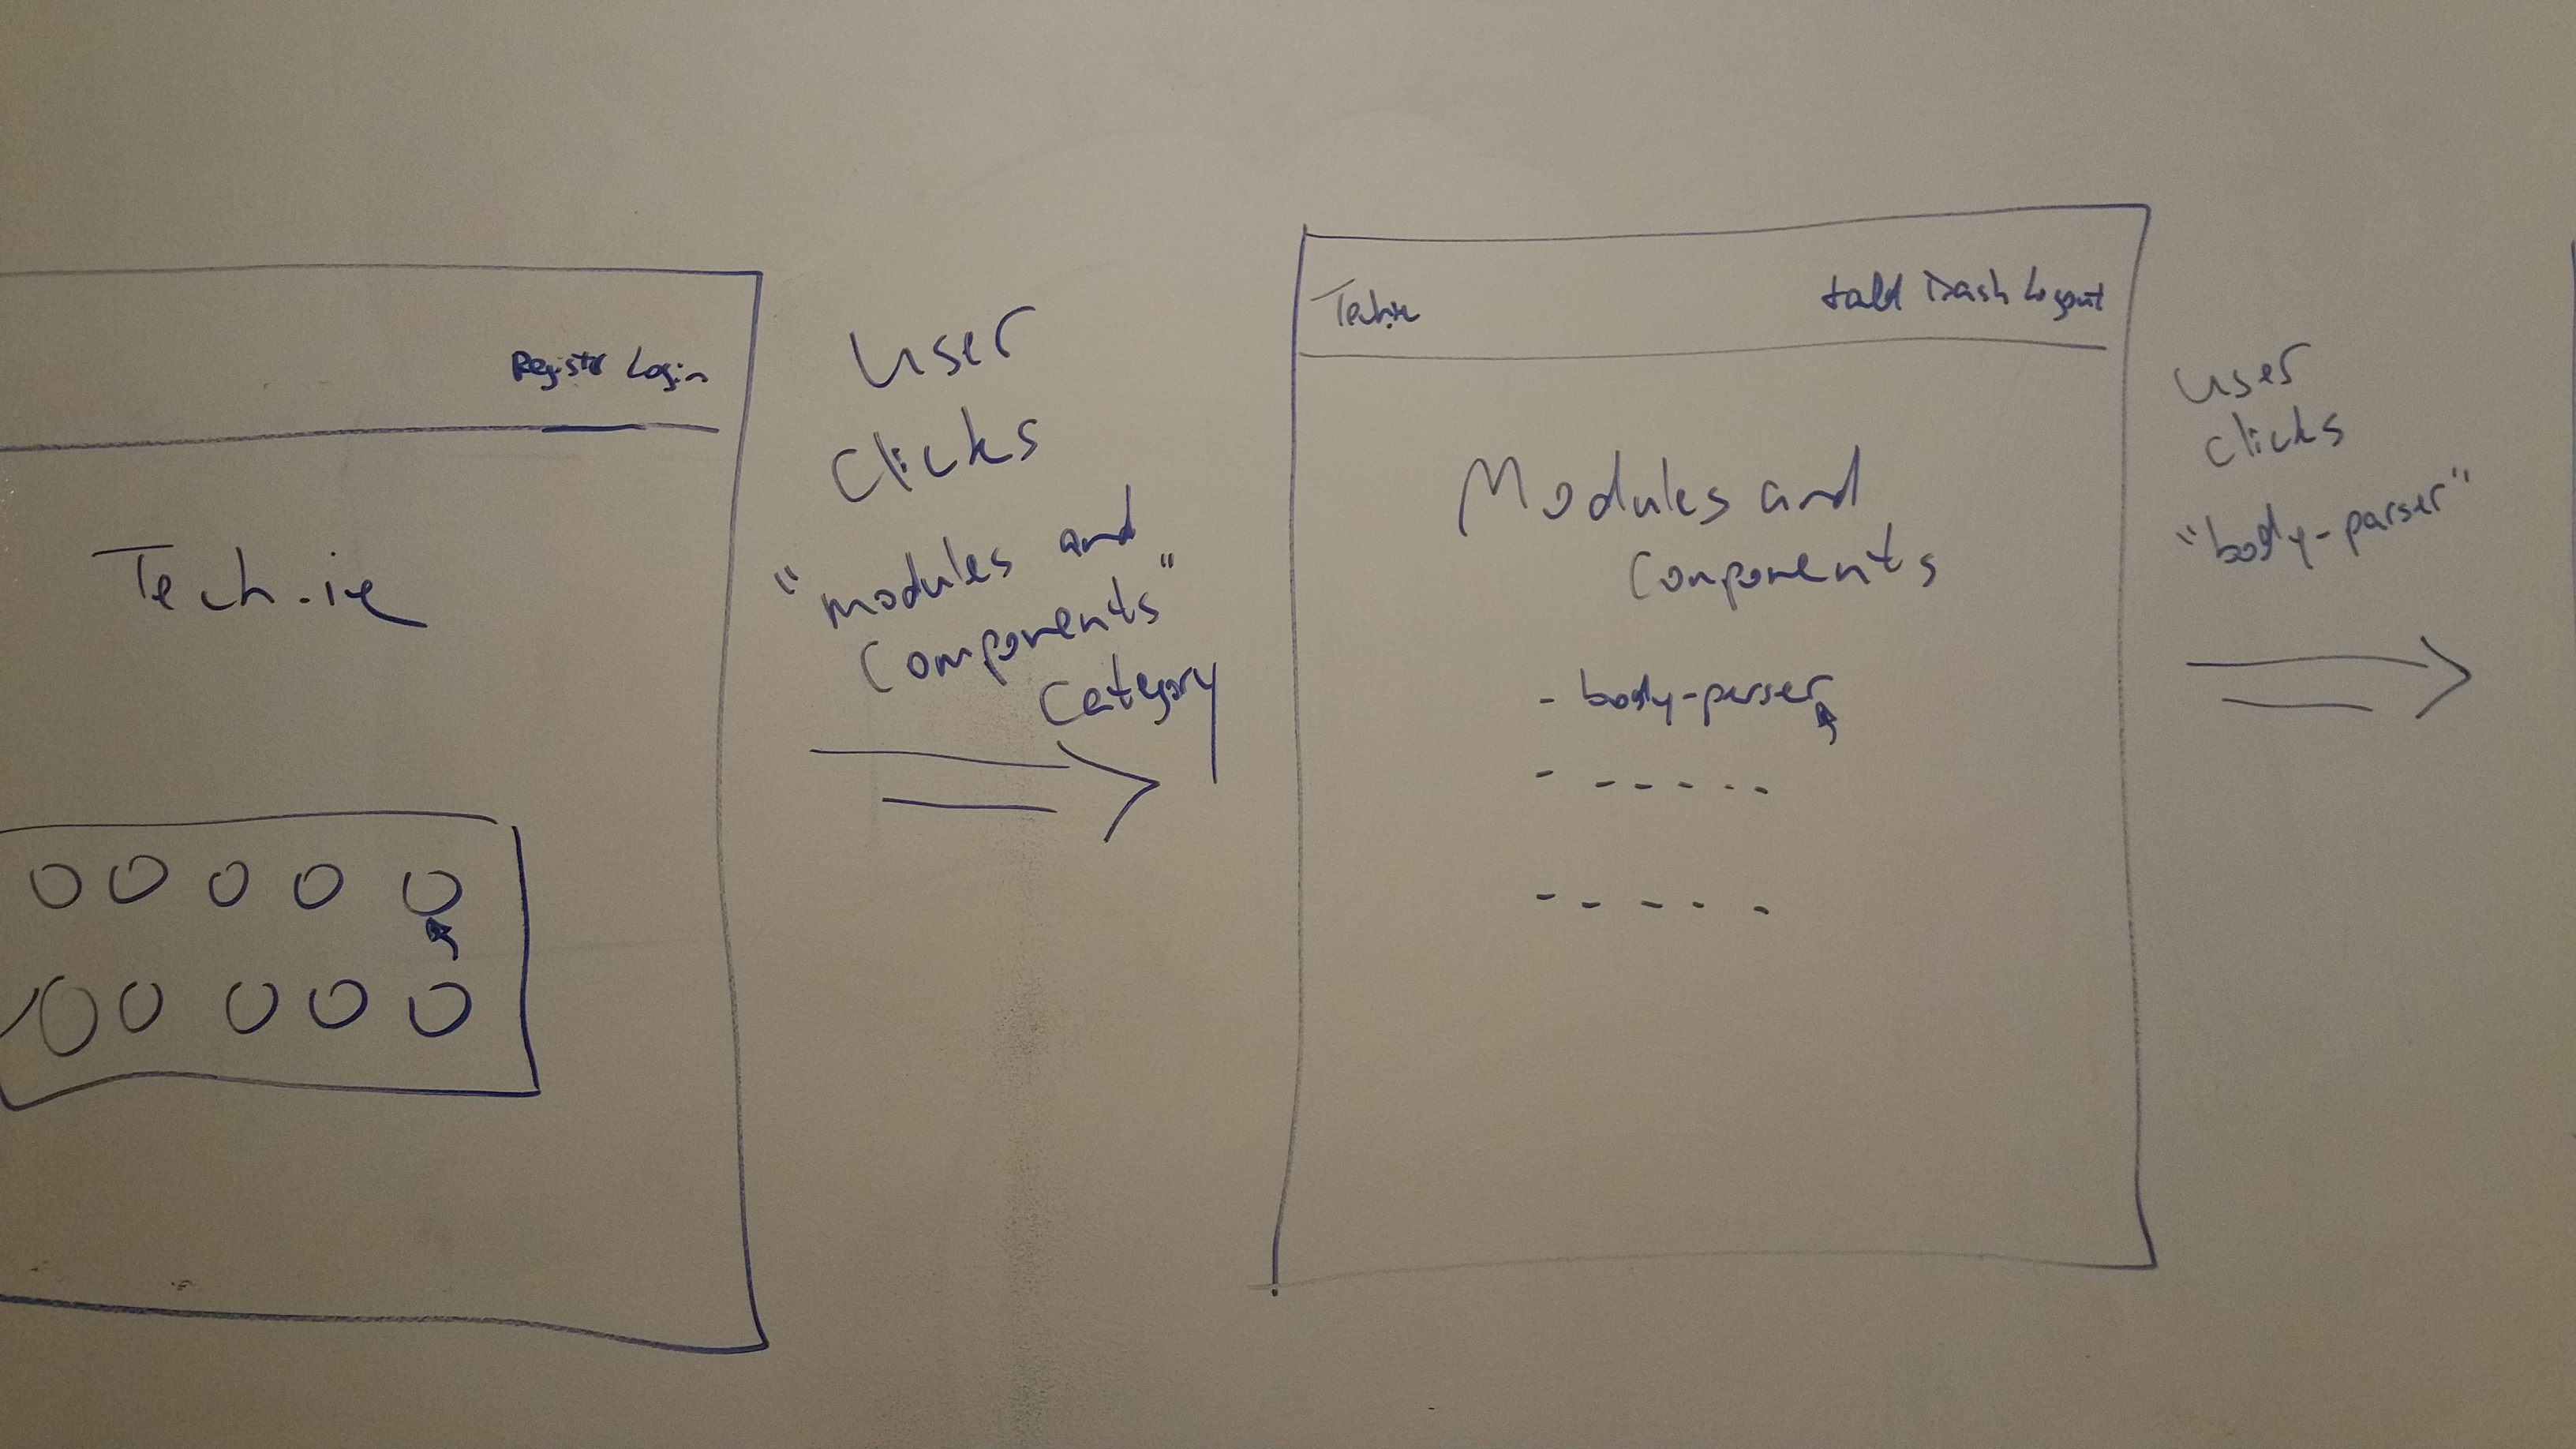 Registr Login
Tech.ie
User
Clicks
"modules and
Components"
Category
Tech.ie
Dash Logout
Modules and
Components
- body-parser
User
clicks
"body-parser"